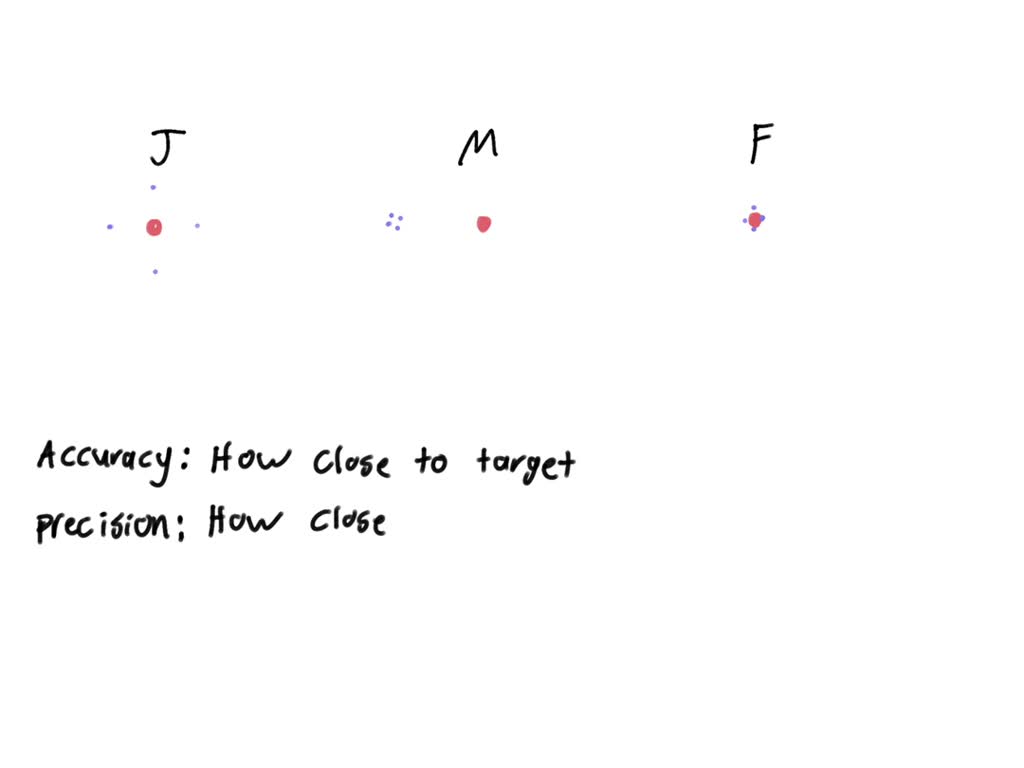 J M F
Accuracy: How close to target
precision: How close